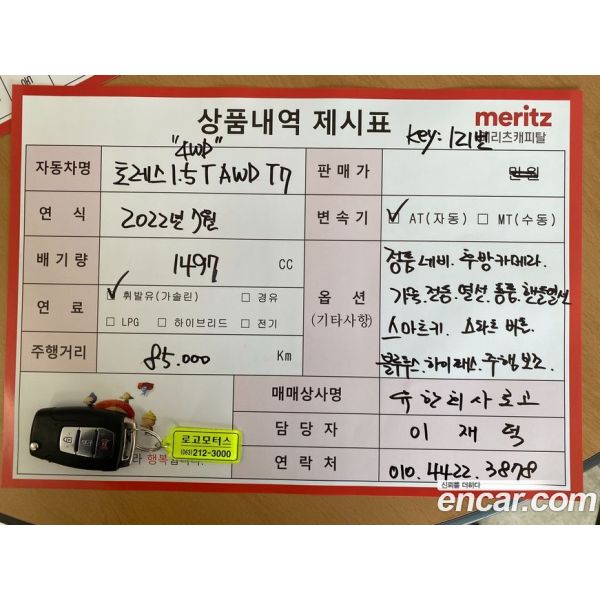 상품내역 제시표
meritz
메리츠캐피탈
"4WD"
Key: 121번
자동차명 토레스 1.5 T AWD T7 판매가 만원
연식 2022년 7월 변속기 ☑ AT(자동) ☐ MT(수동)
배기량 1497 CC
연료 ☑ 휘발유(가솔린) ☐ 경유
☐ LPG ☐ 하이브리드 ☐ 전기
주행거리 85.000 Km
옵션
(기타사항)
정품네비. 후방카메라.
가죽.전동.열선.통풍.핸들열선
스마트키. 스타트 버튼.
블루투스.하이패스.주행보조.
매매상사명 유한회사로고
담당자 이재덕
연락처 010.4422.3878
로고모터스
(063)212-3000
라 행복합니다.
신뢰를 더하다
encar.com